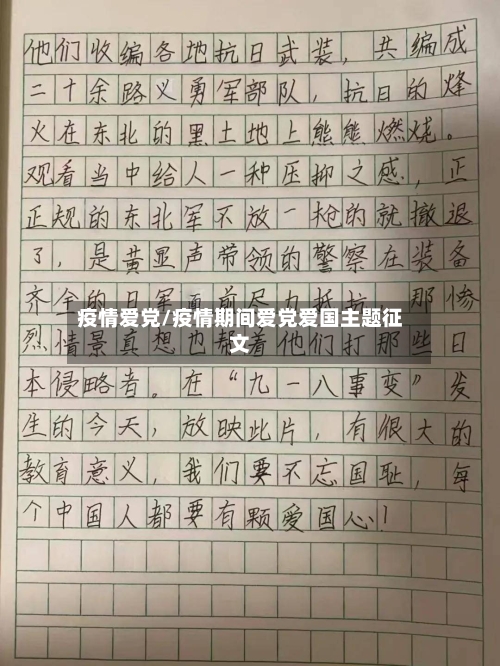 他们收编各地抗日武装，共编成
二十余路义勇军部队，抗日的烽
火在东北的黑土地上熊熊燃烧。
观看当中给人一种压抑之感，正
正规的东北军不放一枪的就撤退
了，是黄显声带领的警察在装备
齐全的日军面前尽力抵抗，那惨
疫情爱党/疫情期间爱党爱国主题征
文
烈情景真想也帮着他们打那些日
本侵略者。在“九一八事变”发
生的今天，放映此片，有很大的
教育意义，我们要不忘国耻，每
个中国人都要有颗爱国心！